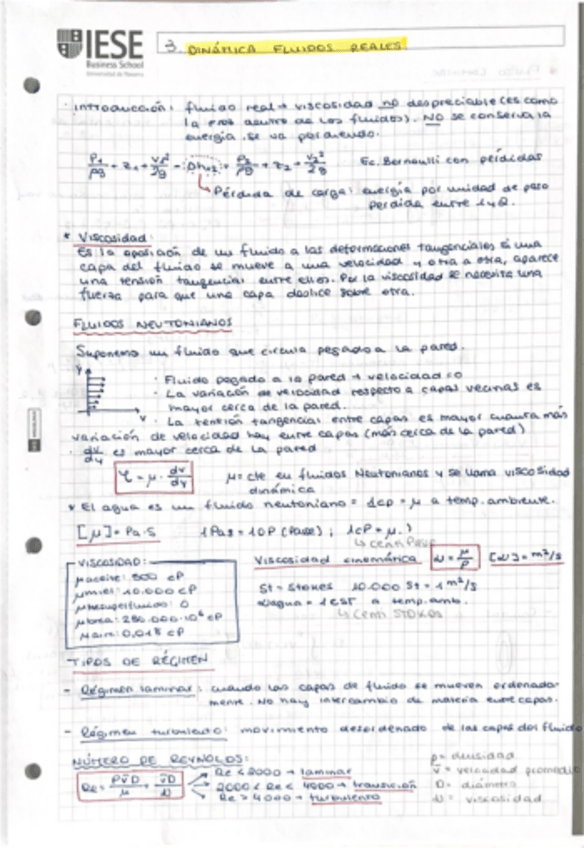 IESE
Business School
Universidad de Navarra
3. DINÁMICA FLUIDOS REALES
Introducción: fluido real → viscosidad no despreciable (es como
la dentro de los fluidos). NO se conserva la
energía, se va perdiendo.
P1/ρg + z1 + v1²/2g - Δh1,2 = P2/ρg + z2 + v2²/2g Ec. Bernoulli con pérdidas
Pérdida de carga: energía por unidad de peso
perdida entre 1 y 2.
* Viscosidad:
Es la oposición de un fluido a las deformaciones tangenciales si una
capa del fluido se mueve a una velocidad y otra a otra, aparece
una tensión tangencial entre ellos. Por la viscosidad se necesita una
fuerza para que una capa deslice sobre otra.
FLUIDOS NEUTONIANOS
Suponemos un fluido que circula pegado a la pared.
y
· Fluido pegado a la pared → velocidad = 0
· La variación de velocidad respecto a capas vecinas es
mayor cerca de la pared.
v
· La tensión tangencial entre capas es mayor cuanta más
variación de velocidad hay entre capas (más cerca de la pared)
dv/dy es mayor cerca de la pared
τ = μ · dv/dy μ = cte en fluidos Neutonianos y se llama viscosidad
dinámica
* El agua es un fluido neutoniano = 1cp = μ a temp. ambiente.
[μ] = Pa·s 1 Pa·s = 10 P (Poise); 1cP = μ.)
centi Poise
VISCOSIDAD:
μaceite: 500 cP
μmiel: 10.000 cP
μsuperfluido: 0
μbrea: 250.000·10⁶ cP
μaire: 0,018 cP
Viscosidad cinemática ν = μ/ρ [ν] = m²/s
St = Stokes 10.000 St = 1 m²/s
νagua = 1 cST a temp. amb.
Centi STOKES
TIPOS DE RÉGIMEN
- Régimen laminar: cuando las capas de fluido se mueven ordenada-
ment. No hay intercambio de materia entre capas.
- Régimen turbulento: movimiento desordenado de las capas del fluido
NÚMERO DE REYNOLDS:
Re = ρv̄D/μ = v̄D/ν
Re < 2000 → laminar
2000 < Re < 4000 → transición
Re > 4000 → turbulento
ρ = densidad
v̄ = velocidad promedio
D = diámetro
ν = viscosidad